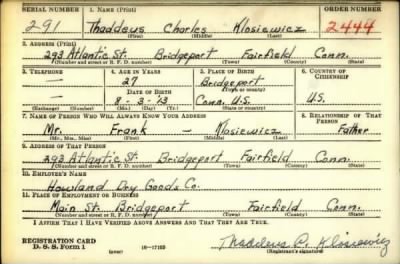 SERIAL NUMBER 1. NAME (Print) ORDER NUMBER
291 Thaddeus Charles Klosiewicz 2444
(First) (Middle) (Last)
2. ADDRESS (Print)
293 Atlantic St. Bridgeport Fairfield Conn.
(Number and street or R. F. D. number) (Town) (County) (State)
3. TELEPHONE 4. AGE IN YEARS 5. PLACE OF BIRTH 6. COUNTRY OF CITIZENSHIP
27 Bridgeport
DATE OF BIRTH (Town or county)
— 8-3-'13 Conn. U.S. U.S.
(Exchange) (Number) (Mo.) (Day) (Yr.) (State or country)
7. NAME OF PERSON WHO WILL ALWAYS KNOW YOUR ADDRESS 8. RELATIONSHIP OF THAT PERSON
Mr. Frank — Klosiewicz Father
(Mr., Mrs., Miss) (First) (Middle) (Last)
9. ADDRESS OF THAT PERSON
293 Atlantic St. Bridgeport Fairfield Conn.
(Number and street or R. F. D. number) (Town) (County) (State)
10. EMPLOYER'S NAME
Howland Dry Goods Co.
11. PLACE OF EMPLOYMENT OR BUSINESS
Main St. Bridgeport Fairfield Conn.
(Number and street or R. F. D. number) (Town) (County) (State)
I AFFIRM THAT I HAVE VERIFIED ABOVE ANSWERS AND THAT THEY ARE TRUE.
REGISTRATION CARD
D. S. S. Form 1 (over) 16-17105 Thaddeus C. Klosiewicz
(Registrant's signature)